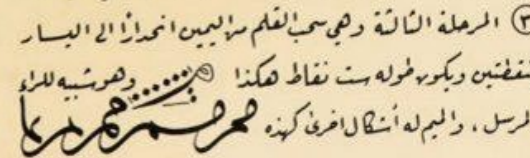 ٣ المرحلة الثالثة وهي سحب القلم من اليمين انحدارًا الى اليسار
نقطتين ويكون طوله ست نقاط هكذا وهو شبيه للراء
المرسل ، والميم له أشكال اخرى كهذه